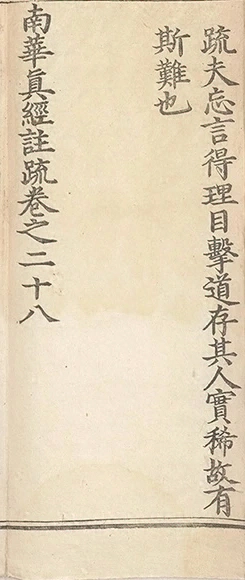 疏夫忘言得理目擊道存其人實稀故有
斯難也
南華眞經註疏卷之二十八